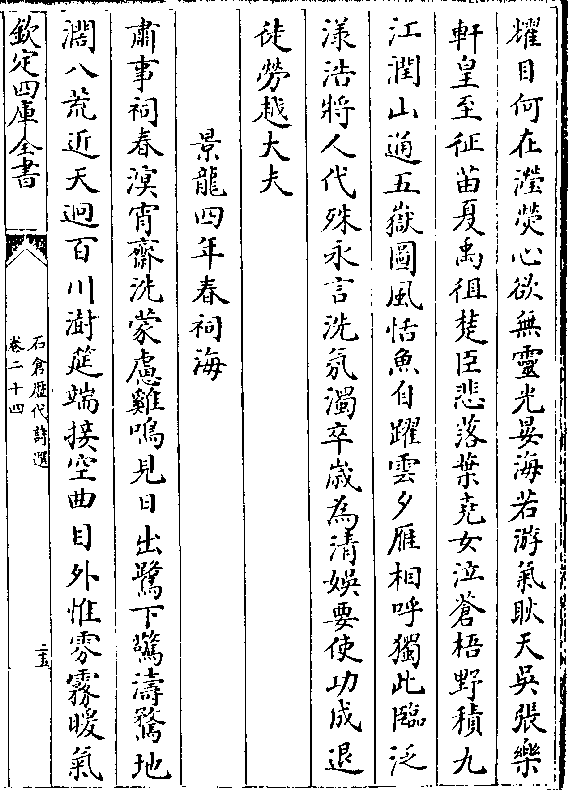 耀目何在瀅熒心欲無靈光晏海若游氣耿天吳張樂
軒皇至征苗夏禹徂楚臣悲落葉堯女泣蒼梧野積九
江潤山通五嶽圖風恬魚自躍雲夕雁相呼獨此臨泛
漾浩將人代殊永言洗氛濁卒歲為清娛要使功成退
徒勞越大夫
景龍四年春祠海
肅事祠春溟宵齋洗蒙慮雞鳴見日出鷺下驚濤鶩地
濶八荒近天迴百川澍筵端接空曲目外惟雰霧暖氣
欽定四庫全書
石倉歷代詩選
卷二十四
二五